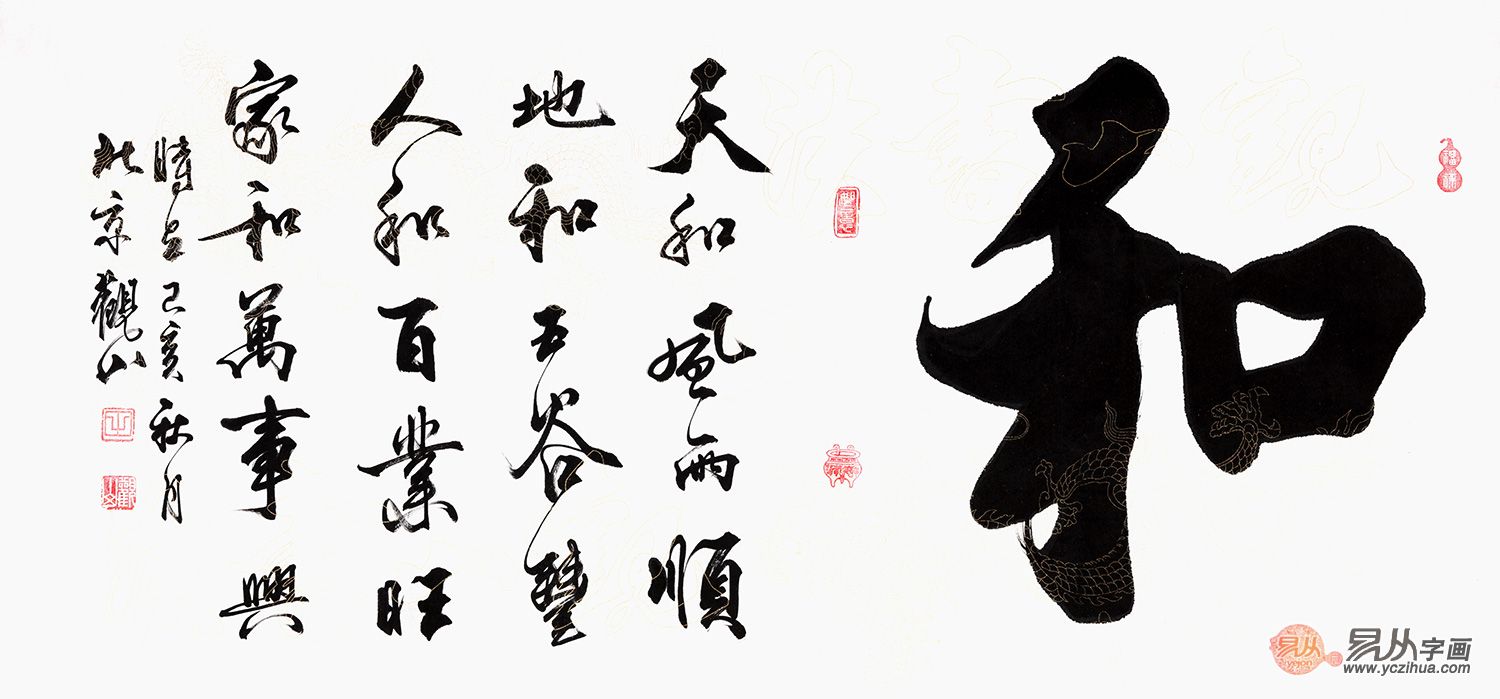 和
天和風雨順
地和五谷豐
人和百業旺
家和萬事興
時在己亥秋月
於京觀山
易从字画
www.yczihua.com
yejon